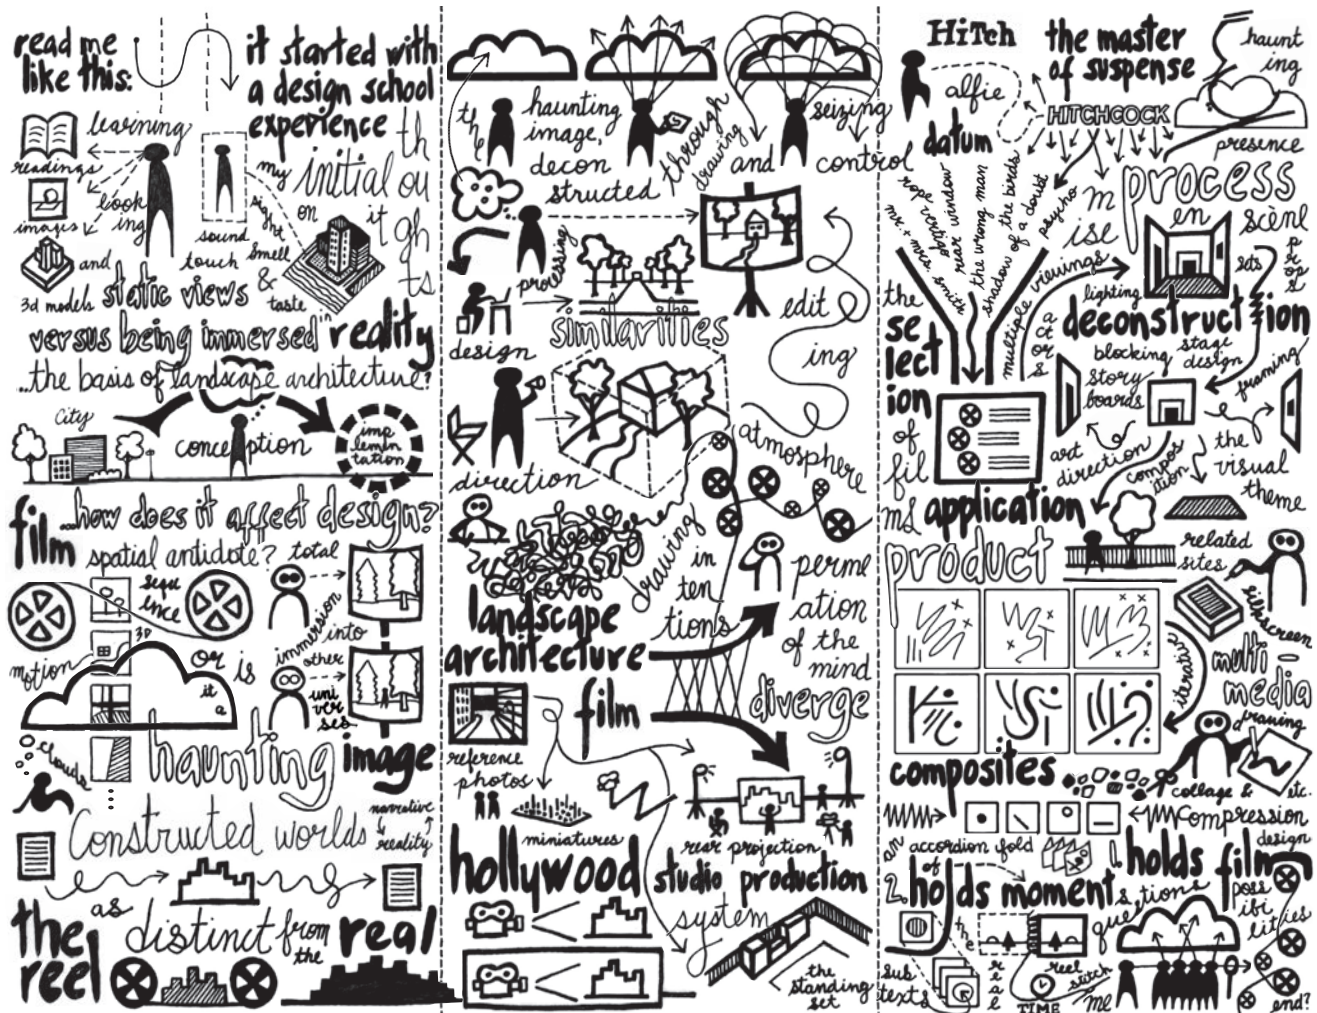 read me
like this:
it started with
a design school
experience
learning
readings
looking
images
and
3d models
static views
sound
touch
my
sight
smell
&
taste
initial
thoughts
on
it
versus being immersed in reality
...the basis of landscape architecture?
City
conception
imp
lemen
tation
film
...how does it affect design?
spatial antidote?
sequ
ence
motion
3D
or is
it
a
total
immersion
into
other
uni
ver
ses
clouds
haunting
image
Constructed worlds
narrative
reality
as
the
reel
distinct from
the
real
the
haunting
image,
decon
structed
through
drawing
and
seizing
control
processing
design
similarities
edit
ing
direction
atmosphere
drawing
in
ten
tions
perme
ation
of the
mind
landscape
architecture
film
diverge
reference
photos
miniatures
rear projection
hollywood
studio production
system
the
standing
set
Hitch
alfie
datum
the master
of suspense
HITCHCOCK
haunt
ing
presence
mr. + mrs. smith
rear window
the wrong man
the birds
shadow of a doubt
psycho
the
se
lect
ion
of
fil
ms
multiple viewings
process
mise
en
scène
sets
props
lighting
actors
deconstruction
blocking
stage
design
framing
story
boards
art
direction
compos
ition
the
visual
theme
application
product
related
sites
silkscreen
iterative
multi-
media
drawing
collage &
etc.
composites
compression
an
accordion fold
of
design
2. holds moments
holds film
questions
poss
ibi
lit
ies
the
real
sub
texts
reel
TIME
stitch
me
end?